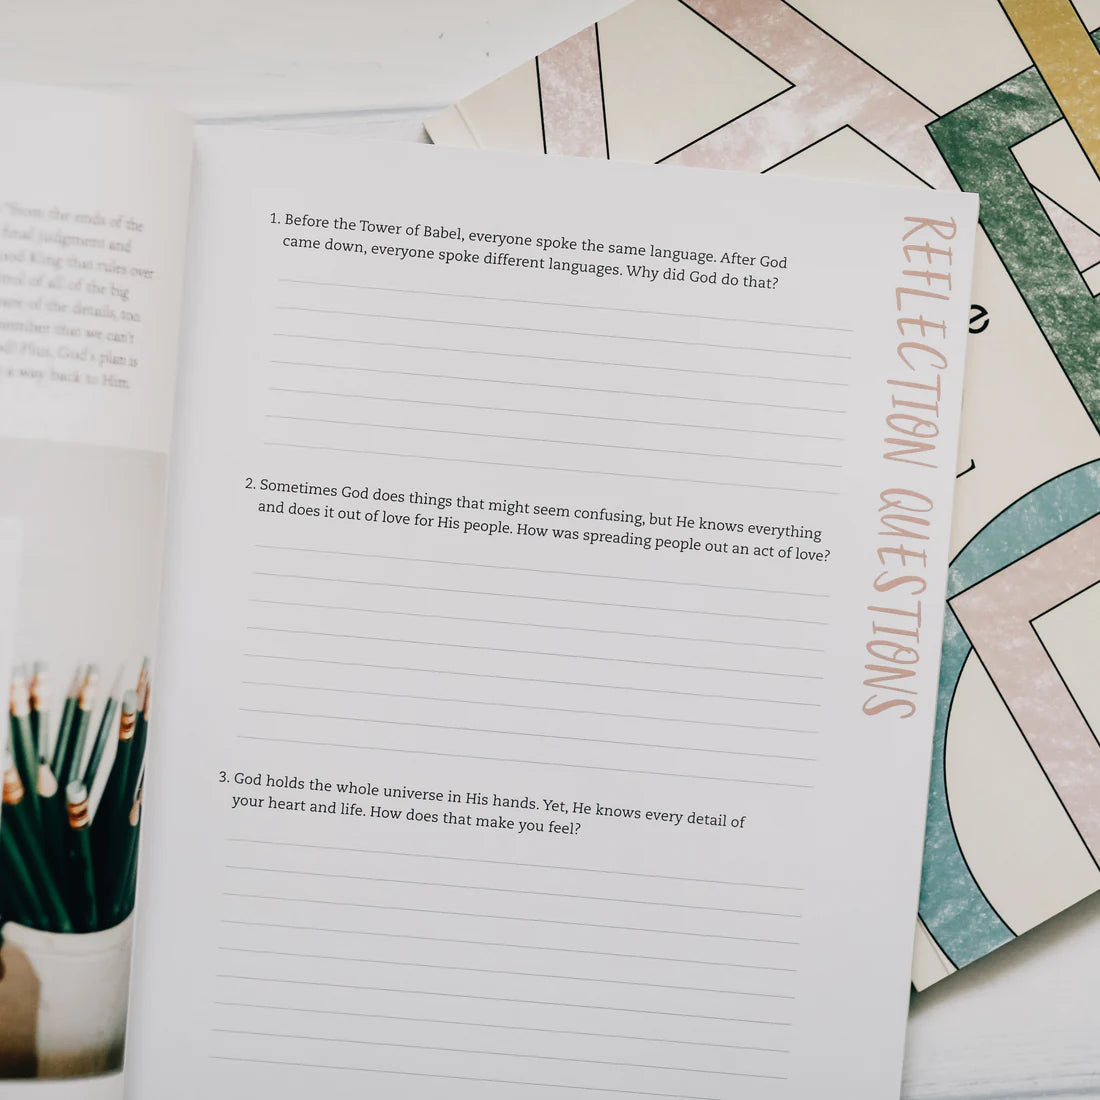 "from the ends of the
final judgment and
God King that rules over
of all of the big
of the details, too.
that we can't
Plus, God's plan is
a way back to Him.
1. Before the Tower of Babel, everyone spoke the same language. After God
came down, everyone spoke different languages. Why did God do that?
2. Sometimes God does things that might seem confusing, but He knows everything
and does it out of love for His people. How was spreading people out an act of love?
3. God holds the whole universe in His hands. Yet, He knows every detail of
your heart and life. How does that make you feel?
REFLECTION QUESTIONS
e